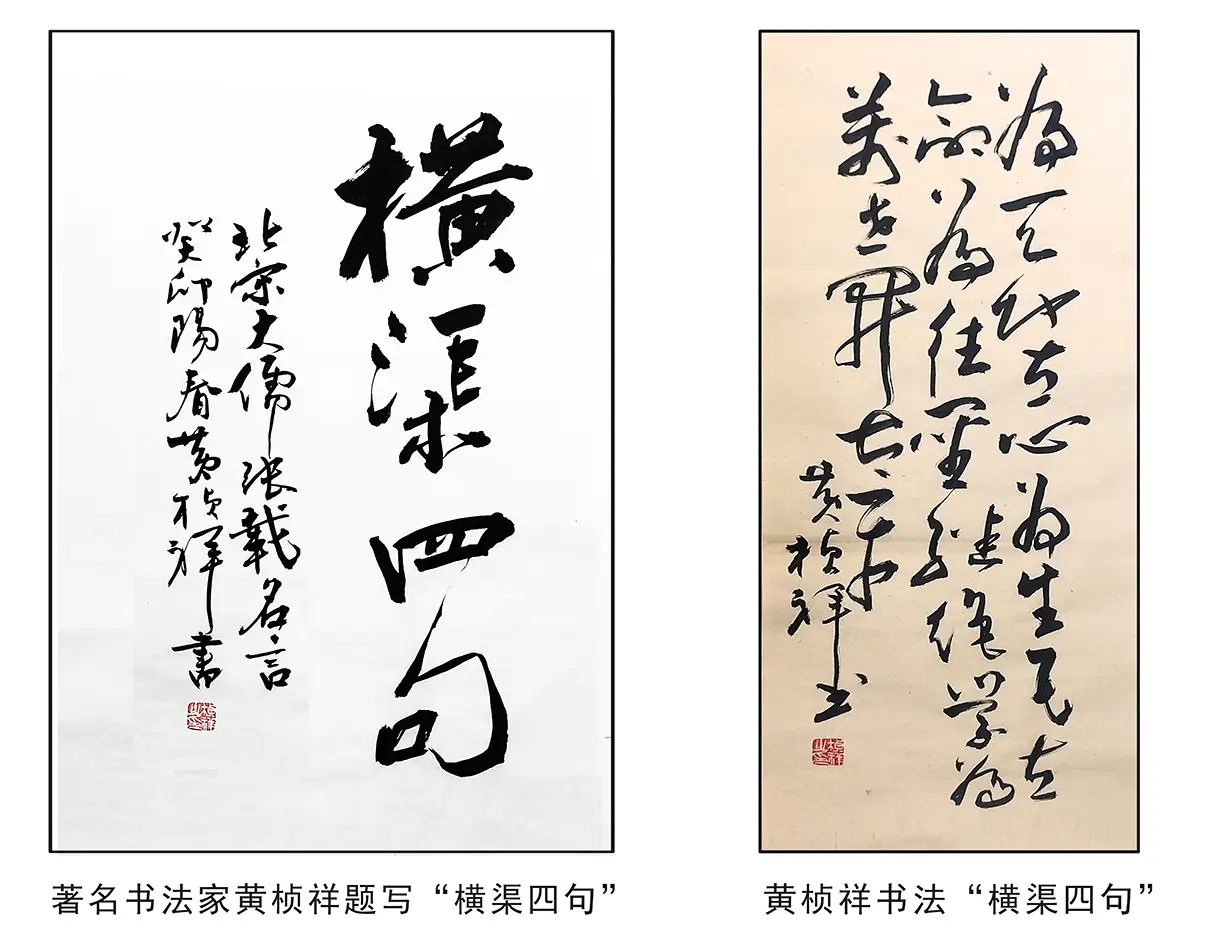 横渠四句
北宋大儒张載名言
癸卯陽春黄桢祥書
著名书法家黄桢祥题写“横渠四句”
為天地立心為生民立
命為往聖继绝学為
萬世開太平
黄桢祥书
黄桢祥书法“横渠四句”